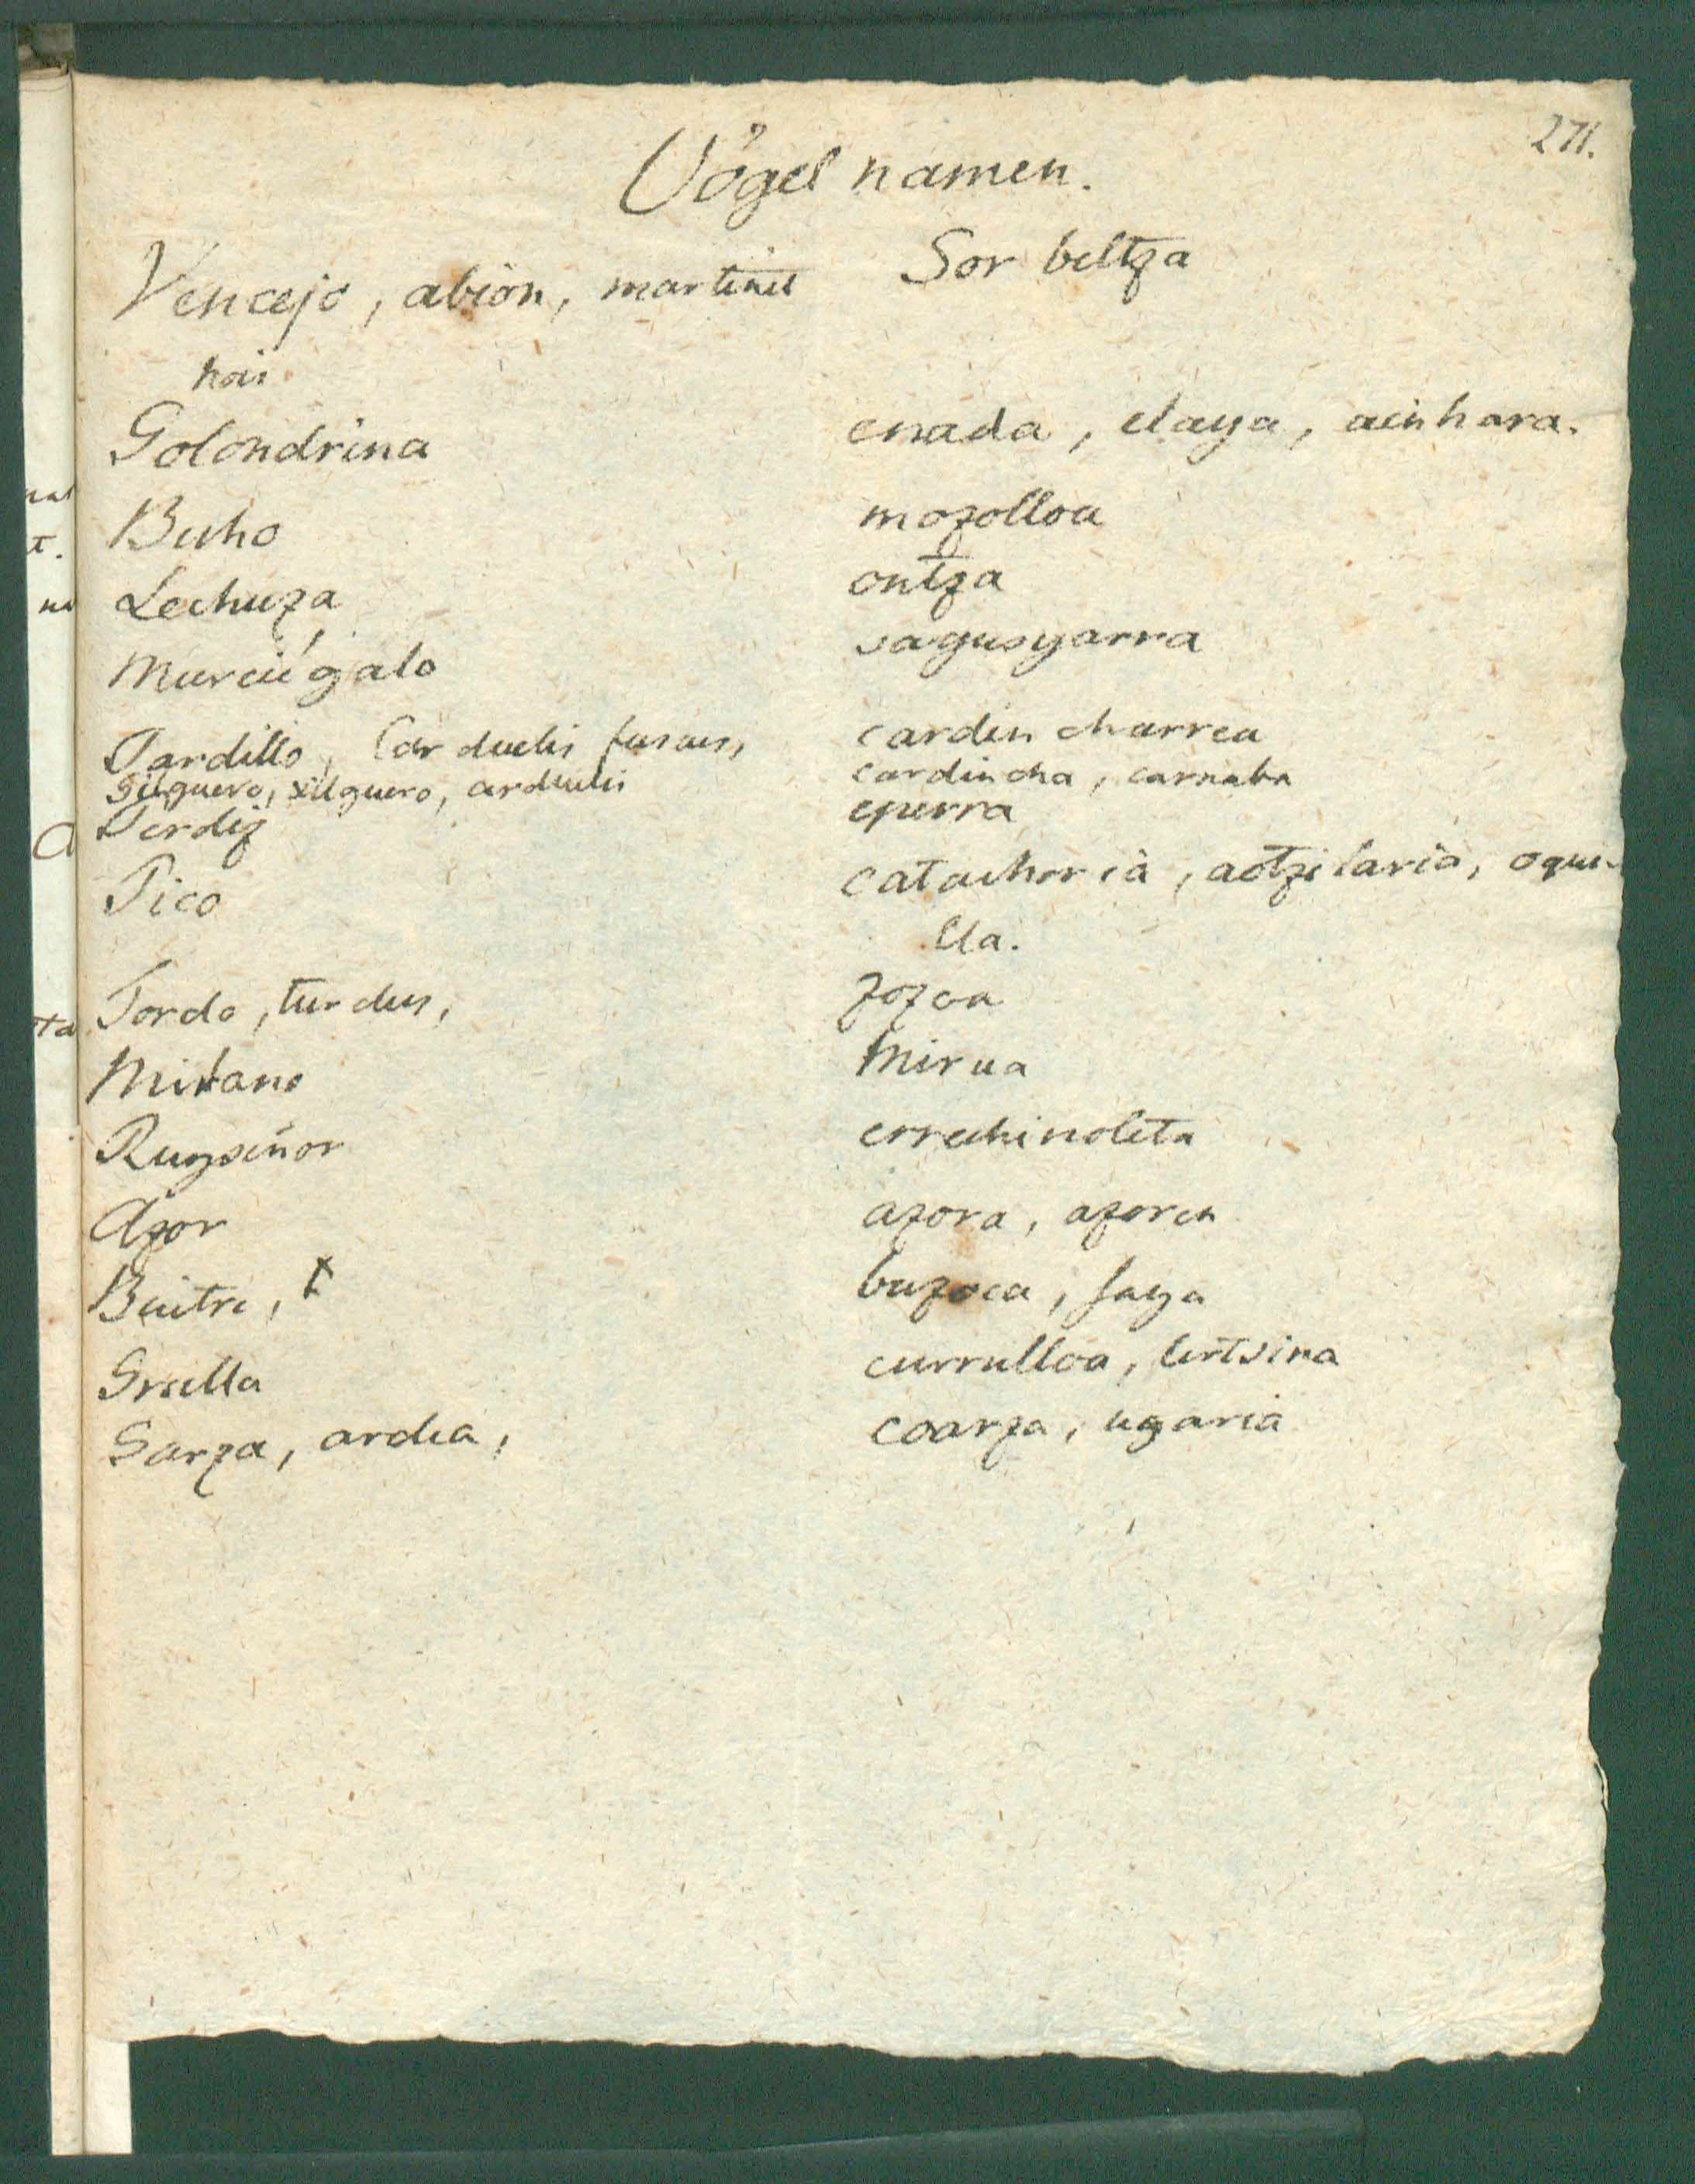 271.
Vögel namen.
Vencejo, abion, martinet Sor beltza
noir
Golondrina enada, elaya, ainhara.
Buho mozolloa
Lechuza ontza
Murciégalo sagusyarra
Pardillo, Carduelis fuscus, cardin charrea
Gilguero, xilguero, carduelis cardincha, carnaba
Perdiz eperra
Pico catachoria, aotzilaria, oque-
lla.
Tordo, turdus, zozoa
Milano Mirua
Ruyseñor errechinoleta
Azor azora, azorea
Buitre, buzoca, saya
Grulla currulloa, lertsina
Garza, ardea, coarza, ugaria